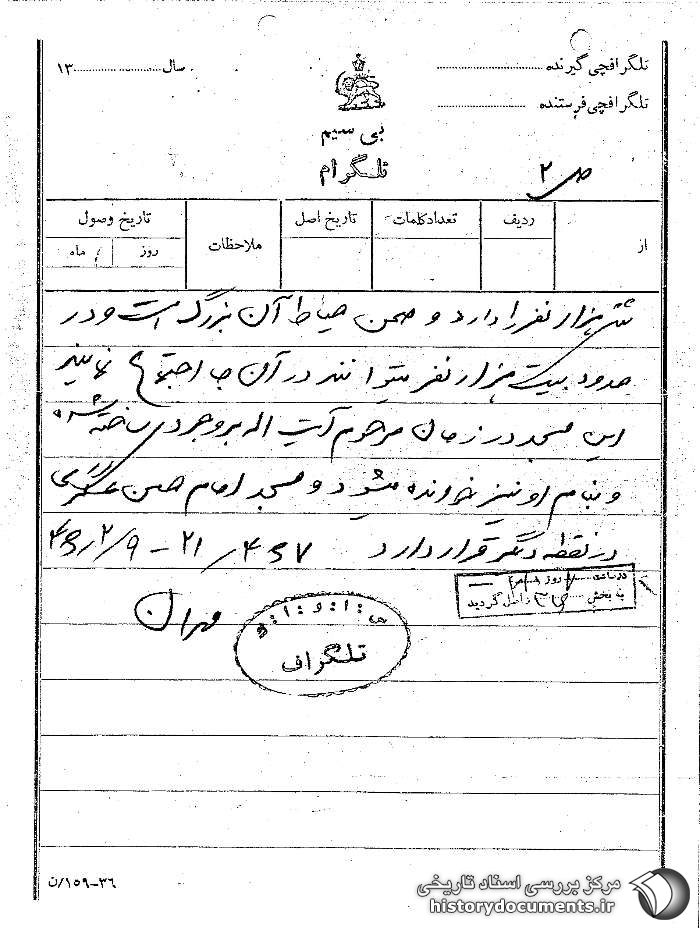 تلگرافچی گیرنده
سال ۱۳
تلگرافچی فرستنده
بی سیم
تلگرام
ص ۲
از
ردیف
تعداد کلمات
تاریخ اصل
ملاحظات
تاریخ وصول
روز
ماه
هزار نفر را دارد و صحن حیاط آن بزرگ است و در
حدود بیست هزار نفر میتوانند در آن جا اجتماع نمایند
این مسجد در زمان مرحوم آیت اله بروجردی ساخته شده
و بنام او نیز خوانده میشود و مسجد امام حسن عسگری
در نقطه دیگر قرار دارد
مهران
در ساعت روز
به بخش واصل گردید
تلگراف
۱۵۹-۳۶/ن
مرکز بررسی اسناد تاریخی
historydocuments.ir